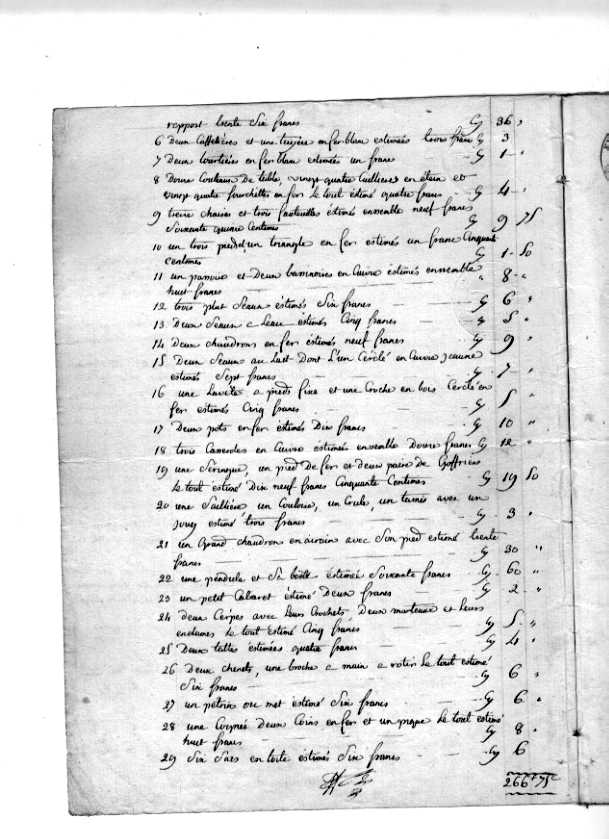 rapport trente Six francs Cy 36 "
6 Deux Caffetières et une teyere en fer blanc estimées trois francs Cy 3
7 Deux tourtières en fer blanc estimées un franc Cy 1 "
8 Douze Couteaux de table, vingt quatre Cuillieres en étain et
vingt quatre fourchettes en fer le tout estimé quatre francs Cy 4 "
9 treize chaises et trois fauteuilles estimés ensemble neuf francs
Soixante quinze Centimes Cy 9 75
10 un trois pieds, un triangle en fer estimés un franc Cinquante
centimes Cy 1 50
11 un panier et Deux bassinoires en Cuivre estimés ensemble
huit francs " 8 "
12 trois plat Seaux estimés Six francs Cy 6 "
13 Deux Seaux a Leau estimés Cinq francs Cy 5 "
14 Deux chaudrons en fer estimés neuf francs Cy 9 "
15 Deux Seaux au Lait Dont L'un Cerclé en Cuivre jaune
estimés Sept francs Cy 7 "
16 une a pieds fixe et une Cruche en bois Cerclé en
fer estimés Cinq francs Cy 5 "
17 Deux pots en fer estimés Dix francs Cy 10 "
18 trois Casseroles en Cuivre estimées ensemble Douze francs Cy 12 "
19 une Seringue, un pied De fer et deux paire de Goffriers
Le tout estimé Dix neuf francs Cinquante Centimes Cy 19 50
20 une Sallière, un Couloir, un Coule, un tamis avec un
estimé trois francs Cy 3 "
21 un Grand chaudron en airain avec Son pied estimé trente
francs Cy 30 "
22 une pendule et Sa boëtte estimée Soixante francs Cy 60 "
23 un petit Cabaret estimé Deux francs Cy 2 "
24 deux Cerpes avec Leurs Crochets Deux marteaux et Leurs
enclumes Le tout Estimé Cinq francs Cy 5 "
25 Deux tables estimées quatre francs Cy 4 "
26 Deux chenets, une broche a main a rotir Le tout estimé
Six francs Cy 6 "
27 un petrin ou met estimé Six francs Cy 6 "
28 une Coignée Deux Coins en fer et un pique Le tout estimé
huit francs Cy 8 "
29 Six Sacs en toile estimés Six francs Cy 6
266 f 75 c